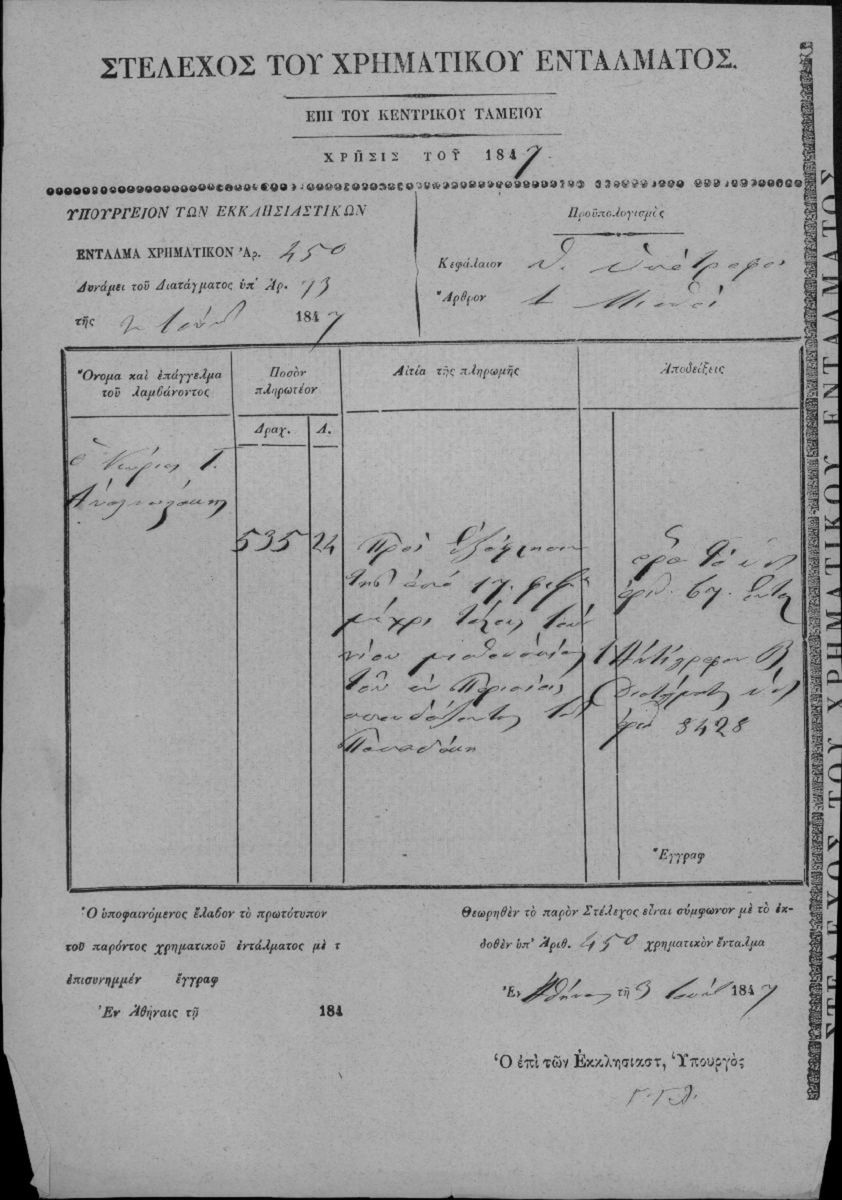 ΣΤΕΛΕΧΟΣ ΤΟΥ ΧΡΗΜΑΤΙΚΟΥ ΕΝΤΑΛΜΑΤΟΣ.
ΕΠΙ ΤΟΥ ΚΕΝΤΡΙΚΟΥ ΤΑΜΕΙΟΥ
ΧΡΗΣΙΣ ΤΟΥ 1847
ΥΠΟΥΡΓΕΙΟΝ ΤΩΝ ΕΚΚΛΗΣΙΑΣΤΙΚΩΝ
ΕΝΤΑΛΜΑ ΧΡΗΜΑΤΙΚΟΝ Ἀρ. 450
Δυνάμει τοῦ Διατάγματος ὑπ' Ἀρ. 73
τῆς 1847
Προϋπολογισμὸς
Κεφάλαιον θ. ὑπότροφοι
Ἄρθρον 1 Μισθοὶ
Ὄνομα καὶ ἐπάγγελμα τοῦ λαμβάνοντος
Ποσὸν πληρωτέον
Δραχ. Λ.
Αἰτία τῆς πληρωμῆς
Ἀποδείξεις
ὁ Κύριος Γ.
535 24
Πρὸς ἐξόφλησιν
τῆς ἀπὸ 17. φεβ
μέχρι τέλους τοῦ
μισθοδοσίας
τοῦ ἐν Παρισίοις
σπουδάζοντος
ἀριθ. 67.
1 Ἀντίγραφον Β.
Διατάγματος ὑπ'
ἀριθ 3428
Ἔγγραφ
Ὁ ὑποφαινόμενος ἔλαβον τὸ πρωτότυπον
τοῦ παρόντος χρηματικοῦ ἐντάλματος μὲ τ
ἐπισυνημμέν ἔγγραφ
Ἐν Ἀθήναις τῇ 184
Θεωρηθὲν τὸ παρὸν Στέλεχος εἶναι σύμφωνον μὲ τὸ ἐκ-
δοθὲν ὑπ' Ἀριθ. 450 χρηματικὸν ἔνταλμα
Ἐν Ἀθήναις τῇ 3 1847
Ὁ ἐπὶ τῶν Ἐκκλησιαστ. Ὑπουργὸς
ΣΤΕΛΕΧΟΣ ΤΟΥ ΧΡΗΜΑΤΙΚΟΥ ΕΝΤΑΛΜΑΤΟΣ